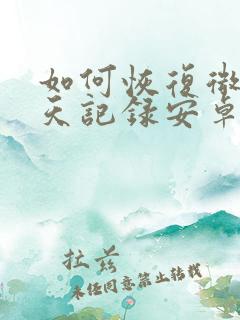 如何恢復微
天記錄安卓
拉茲
未经同意禁止转载